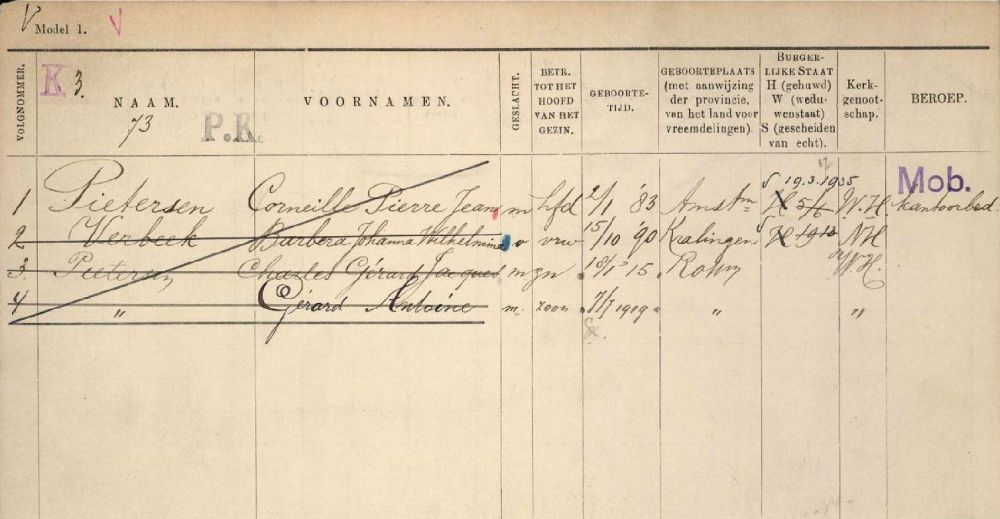 V Model 1. V
K 3.
VOLGNOMMER.
NAAM.
73
P.R.
VOORNAMEN.
GESLACHT.
BETR. TOT HET HOOFD VAN HET GEZIN.
GEBOORTE-TIJD.
GEBOORTEPLAATS (met aanwijzing der provincie, van het land voor vreemdelingen).
BURGER-LIJKE STAAT H (gehuwd) W (wedu-wenstaat) S (gescheiden van echt).
Kerk-genoot-schap.
BEROEP.
S 19.3.1935
Mob.
1 Pietersen Corneille Pierre Jean m hfd 2/1 83 Amstm H 5/6 W.H. kantoorbed
2 Verbeek Barbera Johanna Wilhelmina v vrw 15/10 90 Kralingen S H 1910 NH
3 Pietersen Charles Gérard Jacques m zn 15 Rotm W.H.
4 " Gérard Antoine m. zoon 7/7 1919 " "